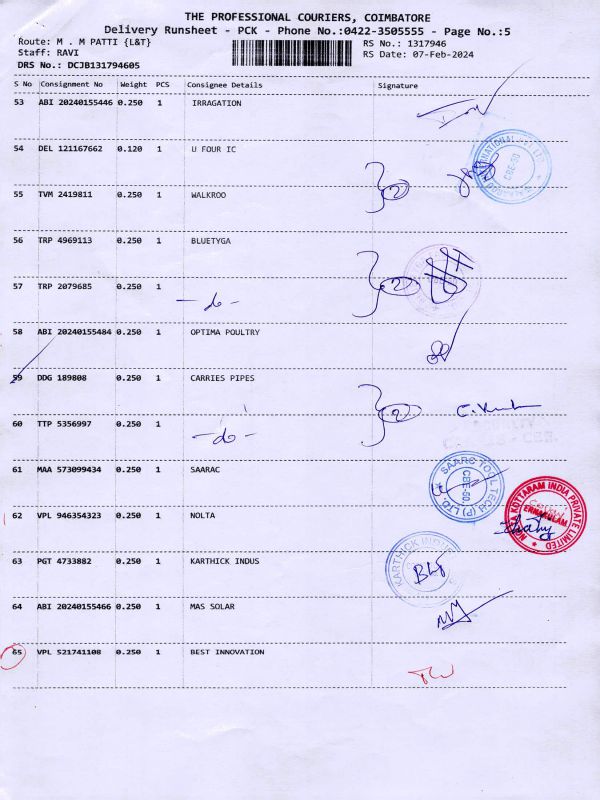 THE PROFESSIONAL COURIERS, COIMBATORE
Delivery Runsheet - PCK - Phone No.:0422-3505555 - Page No.:5
Route: M . M PATTI {L&T}
RS No.: 1317946
Staff: RAVI
RS Date: 07-Feb-2024
DRS No.: DCJB131794605
S No Consignment No Weight PCS Consignee Details Signature
53 ABI 20240155446 0.250 1 IRRAGATION
54 DEL 121167662 0.120 1 U FOUR IC
CBE-50
2
55 TVM 2419811 0.250 1 WALKROO
56 TRP 4969113 0.250 1 BLUETYGA
57 TRP 2079685 0.250 1 -do- 2
58 ABI 20240155484 0.250 1 OPTIMA POULTRY
59 DDG 189808 0.250 1 CARRIES PIPES
2
60 TTP 5356997 0.250 1 -do-
61 MAA 573099434 0.250 1 SAARAC
SAARC TOOL TECH (P) LTD.
CBE-50
62 VPL 946354323 0.250 1 NOLTA
NOLTA KOTTARAM INDIA PRIVATE LIMITED
ERNAKULAM
63 PGT 4733882 0.250 1 KARTHICK INDUS
KARTHICK INDUS
64 ABI 20240155466 0.250 1 MAS SOLAR
65 VPL 521741108 0.250 1 BEST INNOVATION